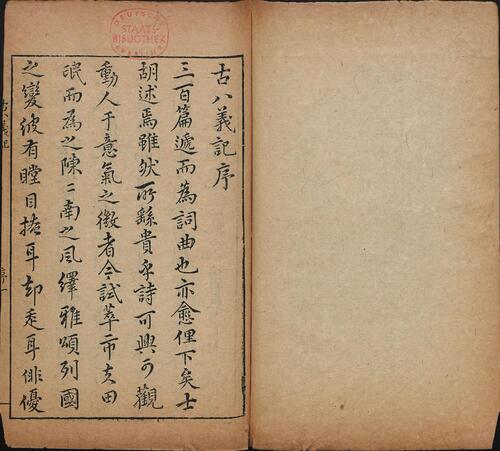 古八義記序
三百篇遞而為詞曲也亦愈俚下矣士
胡述焉雖然所繇貴乎詩可興可觀
動人于意氣之微者今試萃一市夫田
氓而為之陳二南之風繹雅頌列國
之變彼有瞠目掩耳却走耳俳優
古八義記
序一
DEUTSCHE
STAATS-
BIBLIOTHEK
BERLIN